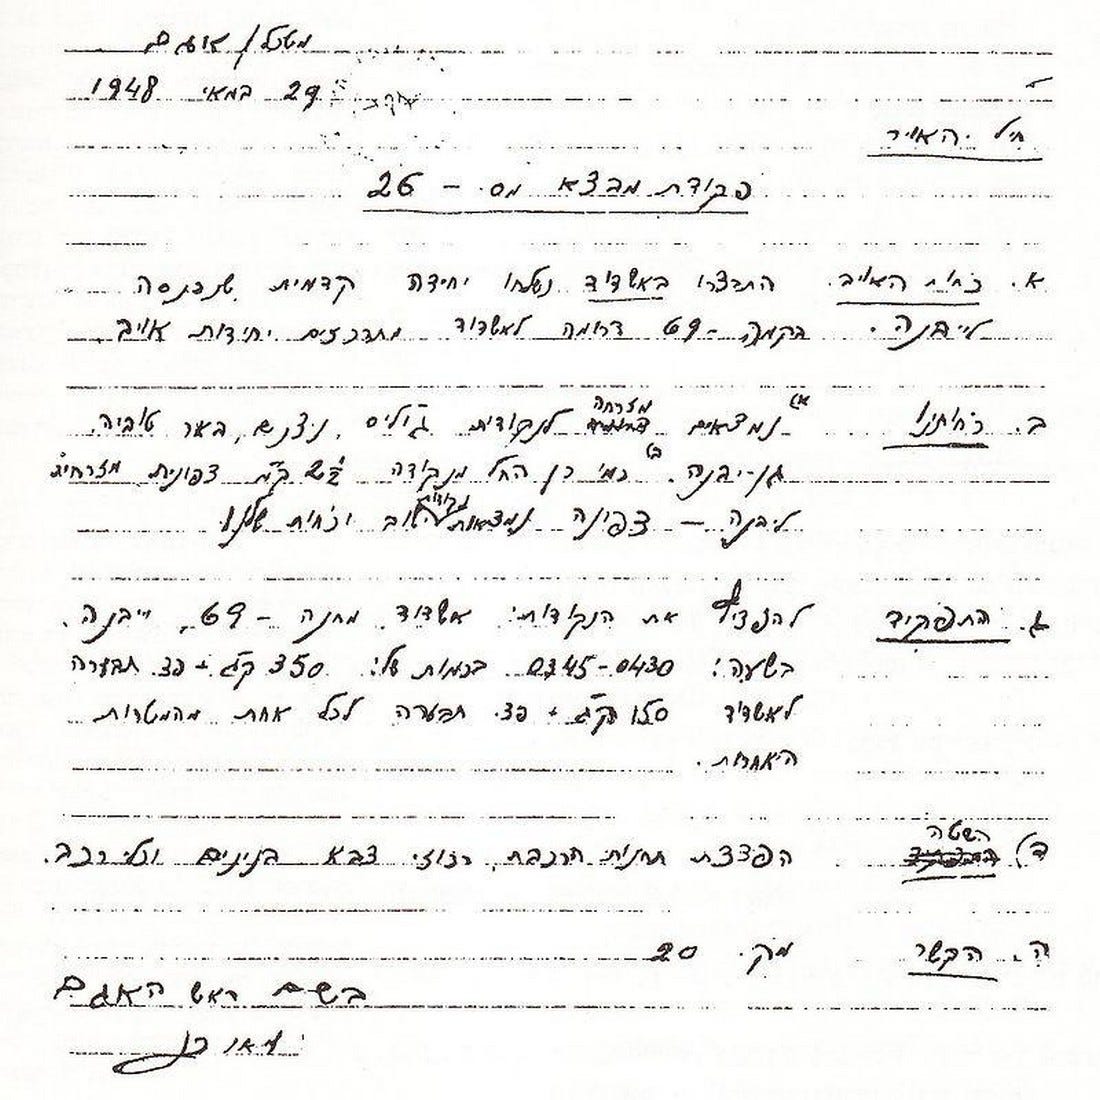 מטכל/אגם
29 במאי 1948
חיל האויר
פקודת מבצע מס. – 26
א. כחות האויב. התבצרו באשדוד ושלחו יחידה קדמית שנכנסה
לייבנה. במחנה – 69 דרומה לאשדוד מתרכזים יחידות אויב.
ב. כחותנו א) נמצאים מזרחה לנקודות ג'וליס, ניצנים, באר טוביה,
גן-יבנה. ב) כמו כן החל מנקודה 2½ ק"מ צפונית מזרחית
ליבנה – צפונה נמצאות נקודות ישוב וכחות שלנו.
ג. התפקיד להפציץ את הנקודות: אשדוד מחנה – 69, ייבנה.
בשעה: 0345-0430 בכמות של: 350 ק"ג + פצ. תבערה
לאשדוד 150 ק"ג + פצ. תבערה לכל אחת מהמטרות
האחרות.
ד) השטה הפצצת תחנות הרכבת, רכוזי צבא בנינים וכלי רכב.
ה. הקשר מק. 20
בשם ראש האגם